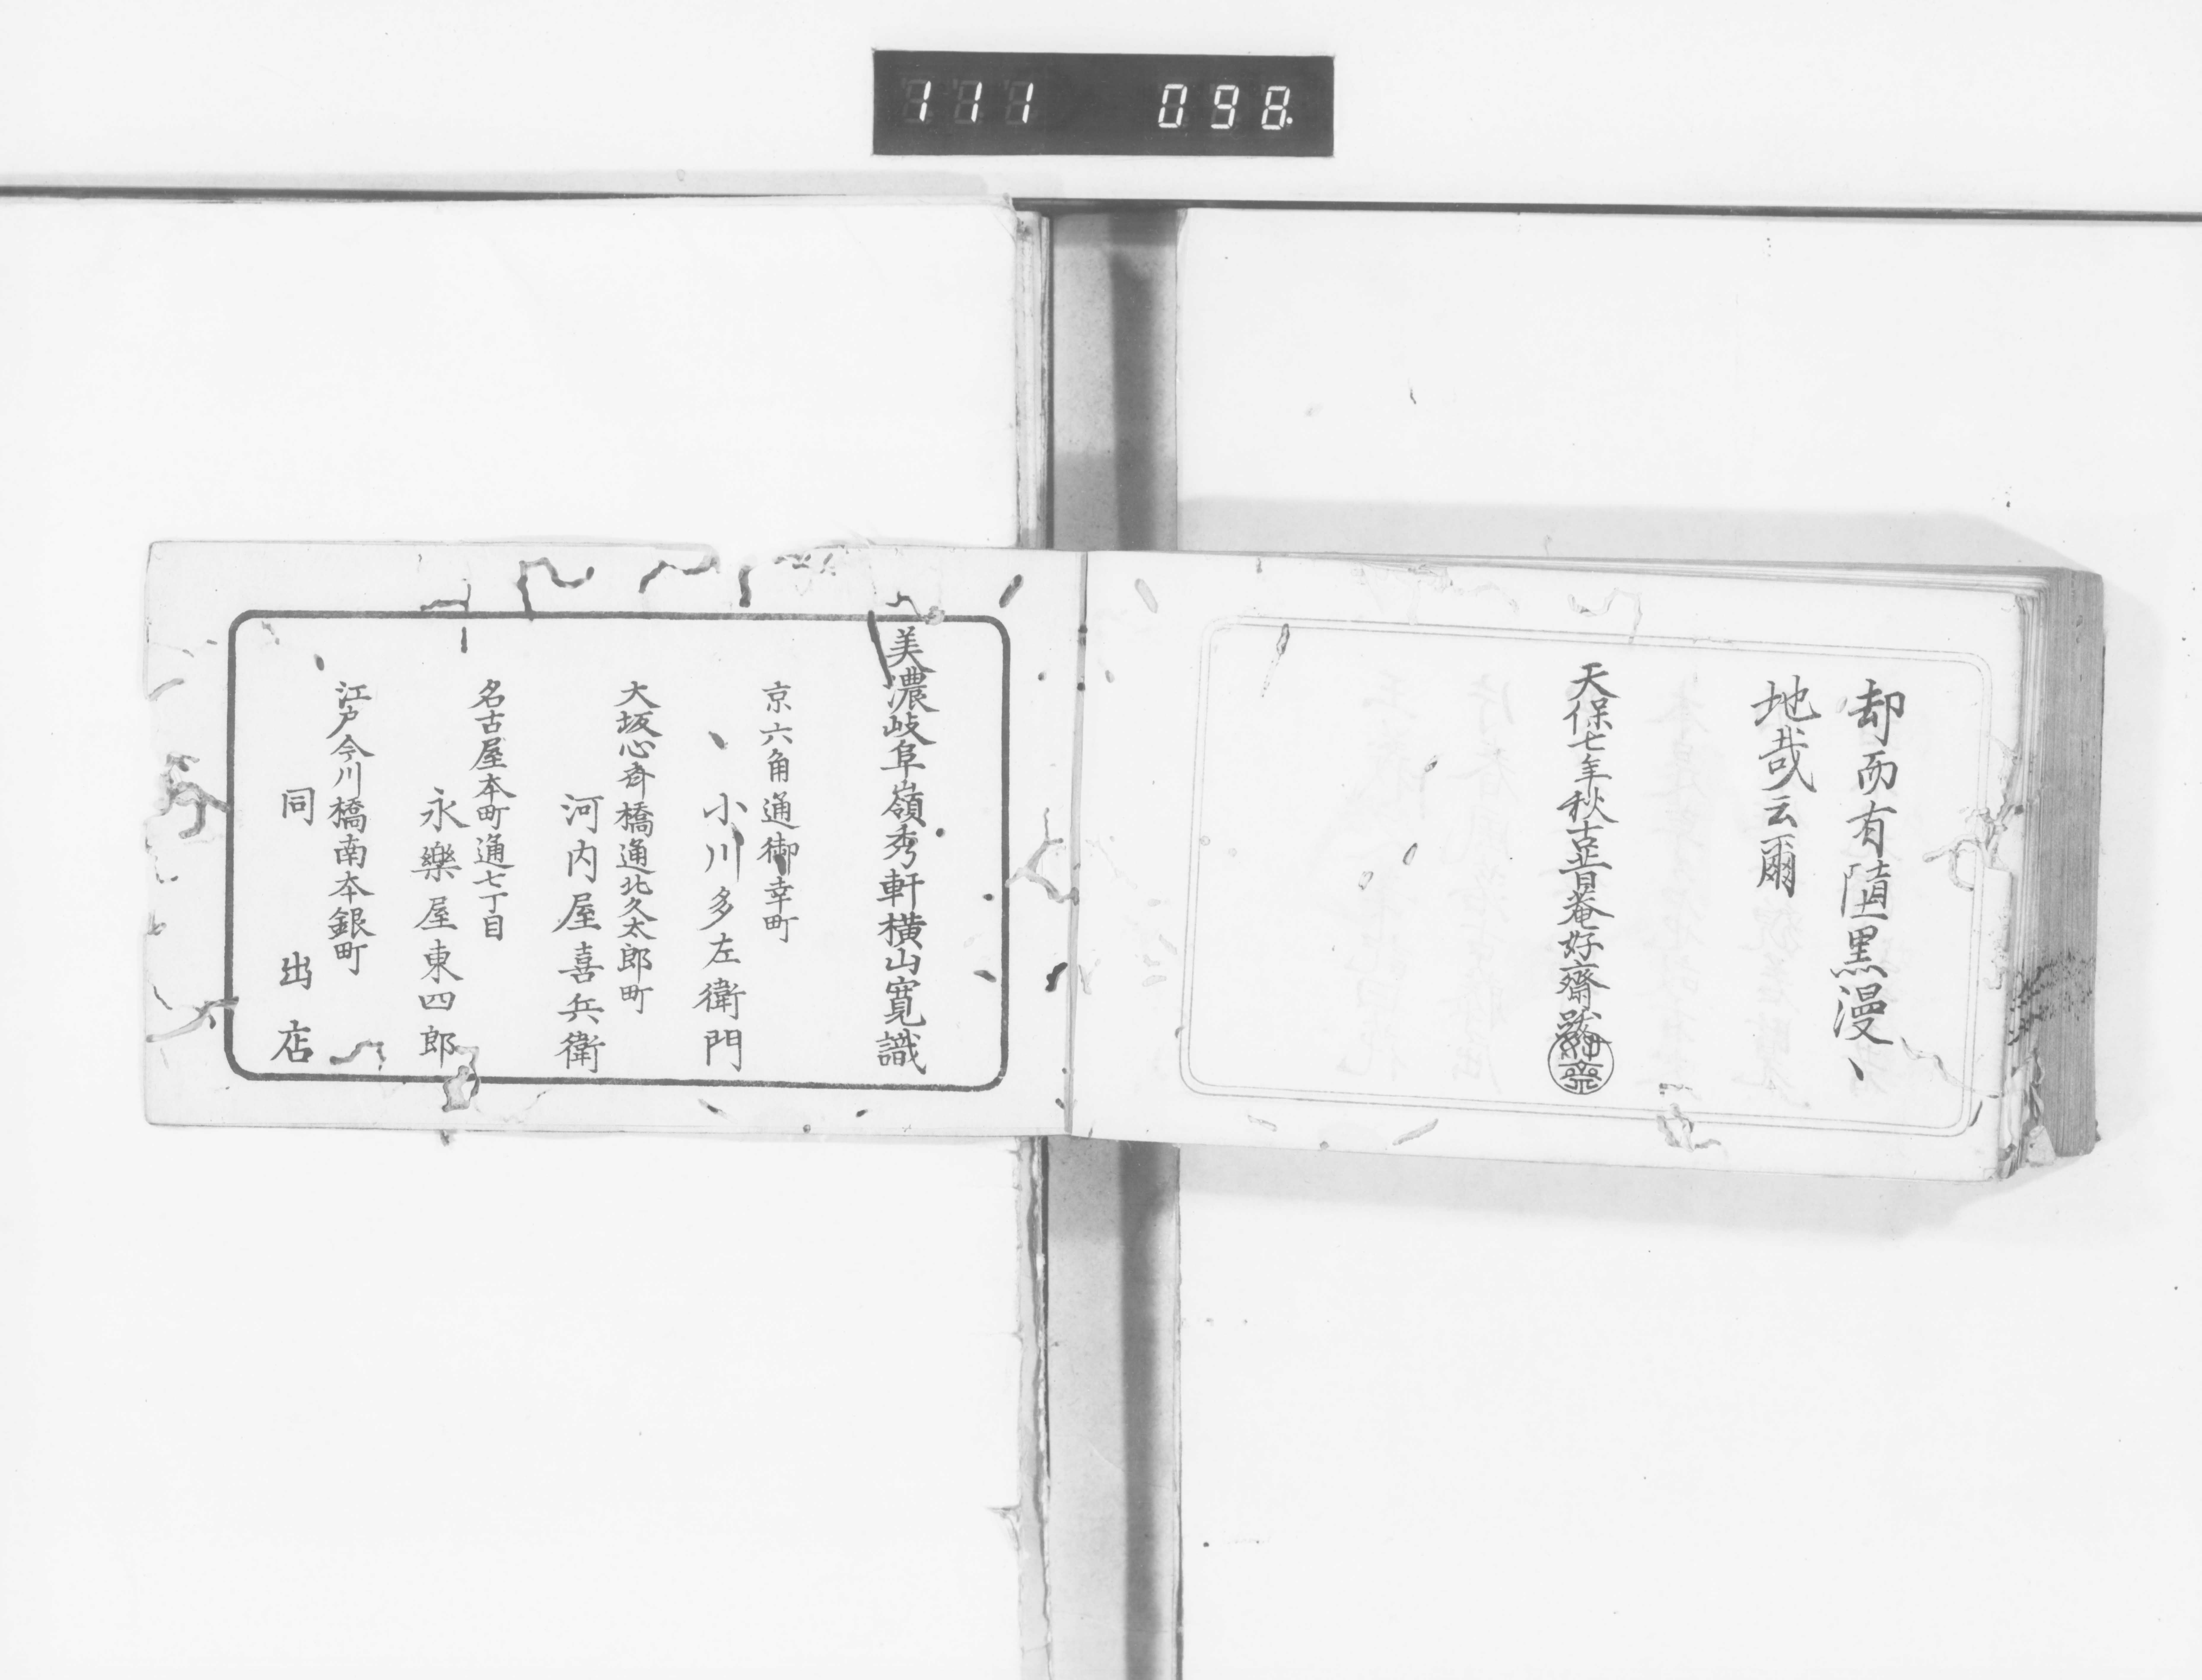 111 098
却而有墮黒漫、
地哉云爾
天保七年秋古昔菴好齋誌
美濃岐阜嶺秀軒横山寛識
京六角通御幸町
小川多左衛門
大坂心斉橋通北久太郎町
河内屋喜兵衛
名古屋本町通七丁目
永樂屋東四郎
江戸今川橋南本銀町
同出店